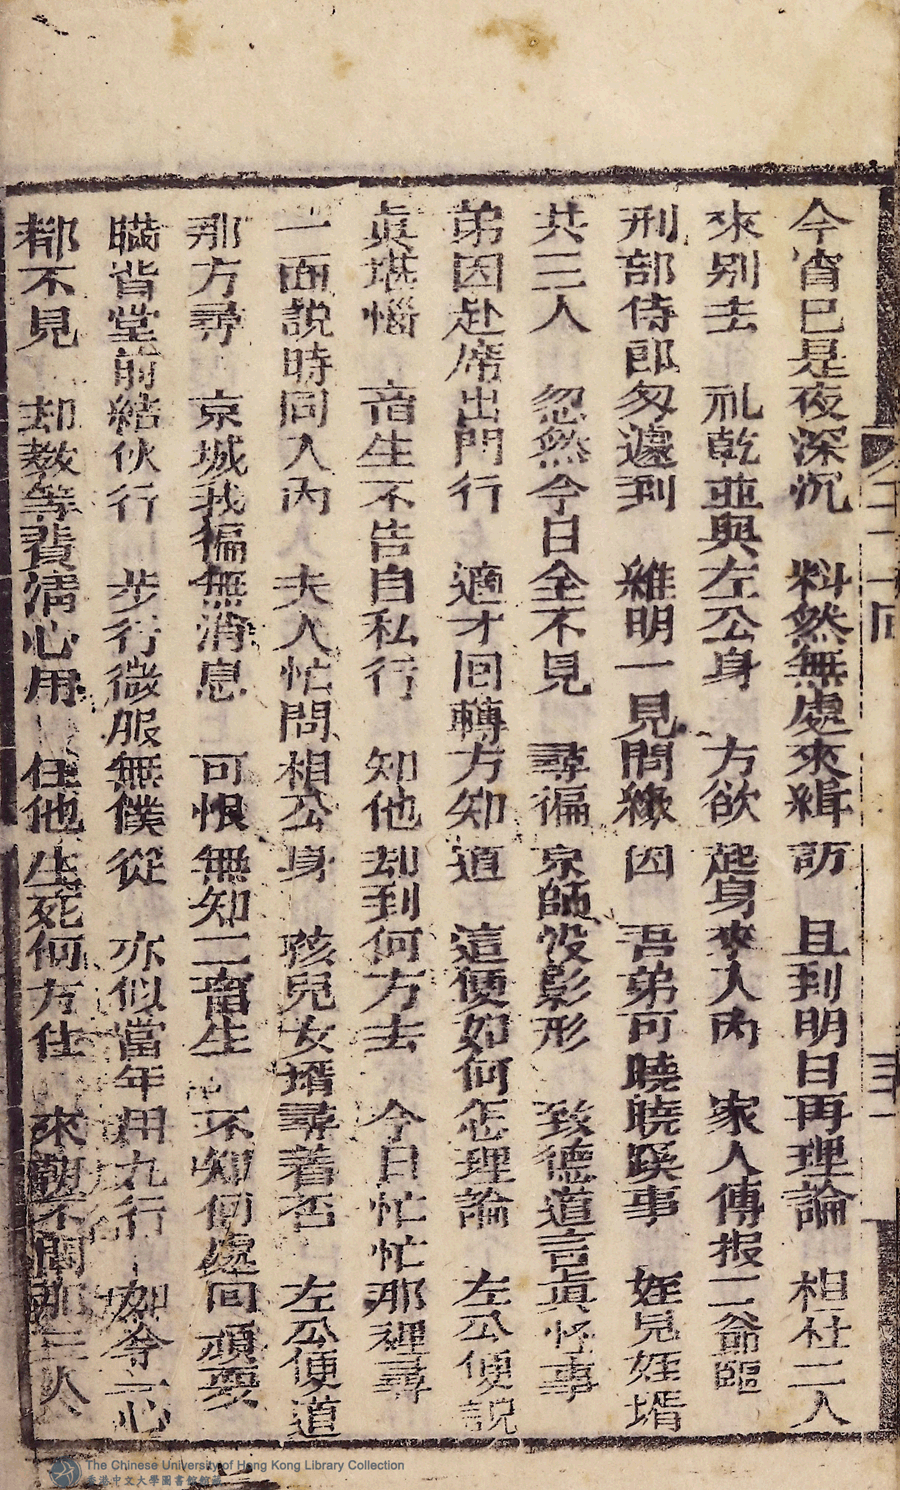 今宵已是夜深沉　料然無處來緝訪　且到明日再理論　相杜二人
來別去　礼乾並與左公身　方欲起身來入內　家人傳报二爺臨
刑部侍郎匆遽到　維明一見問緣因　吾弟可曉曉蹊事　姪兒姪壻
共三人　忽然今日全不見　尋徧京師没影形　致德道言真怪事
弟因赴席出門行　適才囘轉方知道　這便如何怎理論　左公便說
真堪惱　音生不告自私行　知他却到何方去　今日忙忙那裡尋
一面說時同入內　夫人忙問相公身　孩兒女壻尋着否　左公便道
那方尋　京城找徧無消息　可恨無知二畜生　不知何處同頑耍
瞞背堂前結伙行　步行微服無僕從　亦似當年用九行　一心
都不見　却教等費清心用　任他生死何方住　來朝不関那三人
二十一回